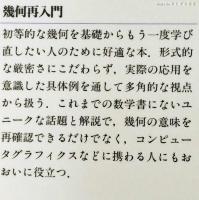 幾何再入門
初等的な幾何を基礎からもう一度学び
直したい人のために好適な本．形式的
な厳密さにこだわらず，実際の応用を
意識した具体例を通して多角的な視点
から扱う．これまでの数学書にないユ
ニークな話題と解説で，幾何の意味を
再確認できるだけでなく，コンピュー
タグラフィクスなどに携わる人にもお
おいに役立つ．